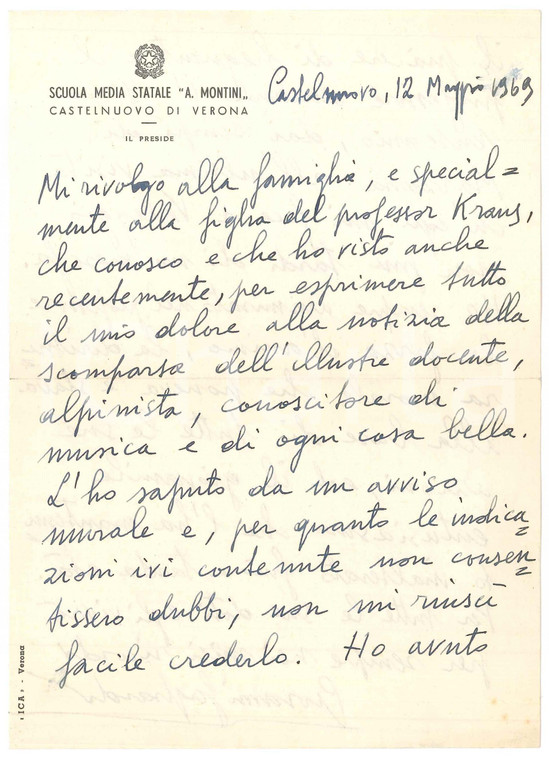 SCUOLA MEDIA STATALE "A. MONTINI„
CASTELNUOVO DI VERONA
IL PRESIDE
Castelnuovo, 12 Maggio 1969
Mi rivolgo alla famiglia, e special=
mente alla figlia del professor Kraus,
che conosco e che ho visto anche
recentemente, per esprimere tutto
il mio dolore alla notizia della
scomparsa dell'illustre docente,
alpinista, conoscitore di
musica e di ogni cosa bella.
L'ho saputo da un avviso
murale e, per quanto le indica=
zioni ivi contenute non consen=
tissero dubbi, non mi riuscì
facile crederlo. Ho avuto
‹ ICA › - Verona